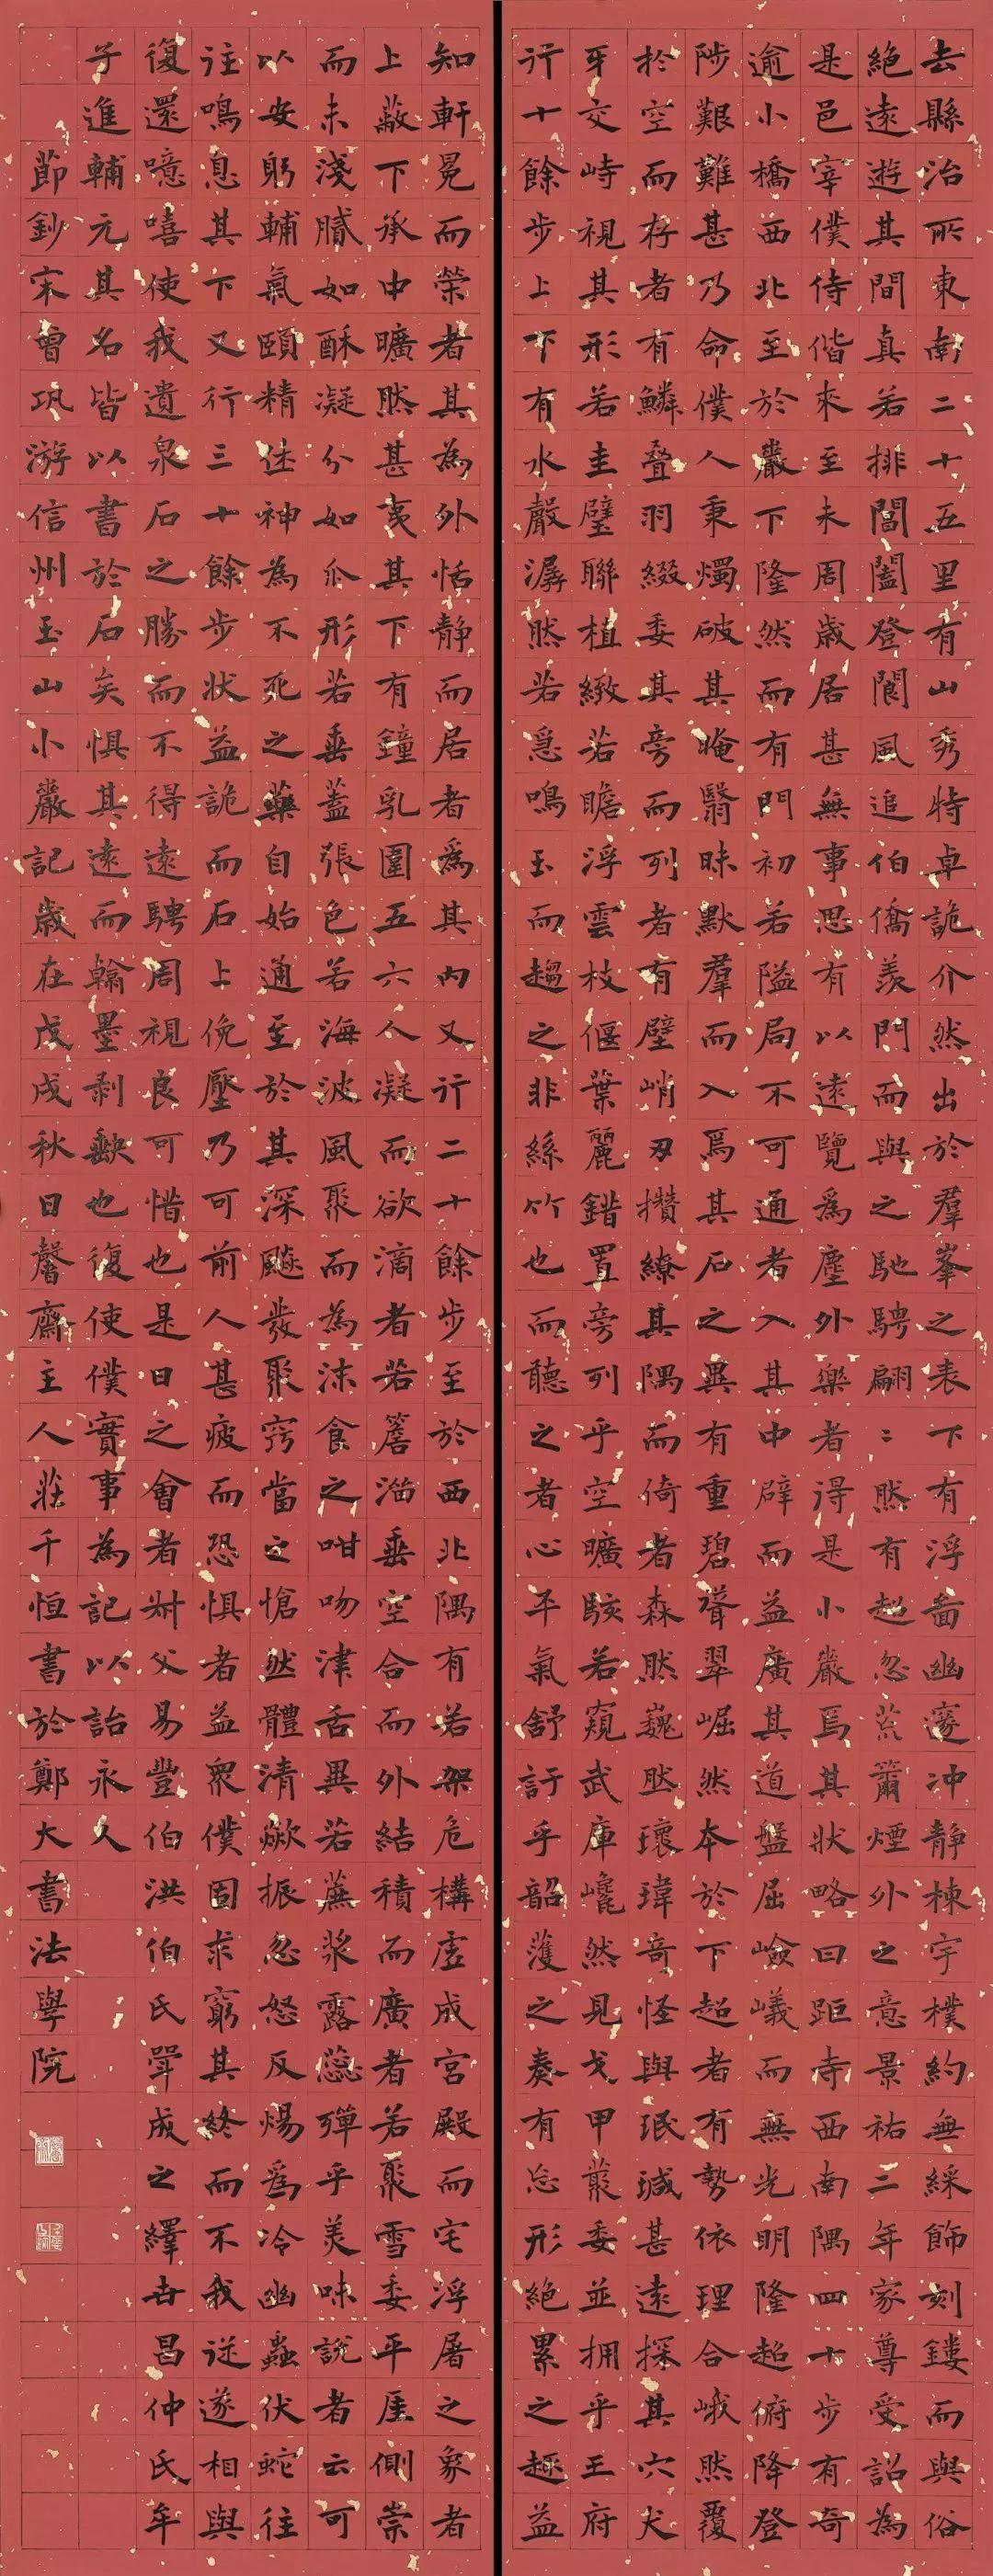 去縣治所東南二十五里有山秀特卓詭介然出於羣峯之表下有浮啚幽邃沖靜棟宇樸約無綵飾刻鏤而與俗
絕遠遊其間真若排閶闔登閬風追伯僑羨門而與之馳騁翩〻然有超忽荒籥煙外之意景祐二年家尊受詔為
是邑宰僕侍偕來至未周歲居甚無事思有以遠覽爲塵外樂者得是小巖焉其狀略曰距寺西南隅四十步有奇
逾小橋西北至於巖下隆然而有門初若隘局不可通者入其中辟而益廣其道盤屈嶮巇而無光明隆起俯降登
陟艱難甚乃命僕人秉燭破其晻翳昧默羣而入焉其石之異有重碧聳翠崛然本於下超者有勢依理合峨然覆
於空而存者有鱗疊羽綴委其旁而列者有壁峭刃攢繚其隅而倚者森然巍然瓌瑋奇怪與珉瑊甚遠探其穴犬
牙交峙視其形若圭璧聯植緻若瞻浮雲枝偃葉麗錯置旁列乎空曠駭若窺武庫巉然見戈甲叢委並拥乎王府
行十餘步上下有水聲潺然若急鳴玉而趨之非絲竹也而聽之者心平氣舒訏乎韶濩之奏有忘形絕累之趣益
知軒冕而榮者其為外恬靜而居者爲其內又行二十餘步至於西北隅有若架危構虛成宮殿而宅浮屠之象者
上蔽下承中曠然甚夷其下有鐘乳圍五六人凝而欲滴者若簷溜垂空合而外結積而廣者若聚雪委平厓側崇
而未淺膩如酥凝分如瓜形若垂蓋張色若海波風聚而為沫食之咁吻津舌異若蔗漿露蕊殫乎美味說者云可
以安躬輔氣頤精迬神為不死之藥自始通至於其深颷發聚窍當之愴然體清歘振忽怒反煬爲冷幽蟲伏蛇往
往鳴息其下又行三十餘步狀益詭而石上俛壓乃可前人甚疲而恐懼者益眾僕固求窮其終而不我從遂相與
復還噫嘻使我遺泉石之勝而不得遠騁周視良可惜也是日之會者尌父易豐伯洪伯氏鞏成之繹古昌仲氏牟
子進輔元其名皆以書於石矣惧其遠而輸墨剥缺也復使僕實事為記以詒永久
節鈔宋曾巩游信州玉山小巖記歲在戊戌秋日馨齋主人莊千恒書於鄭大書法學院